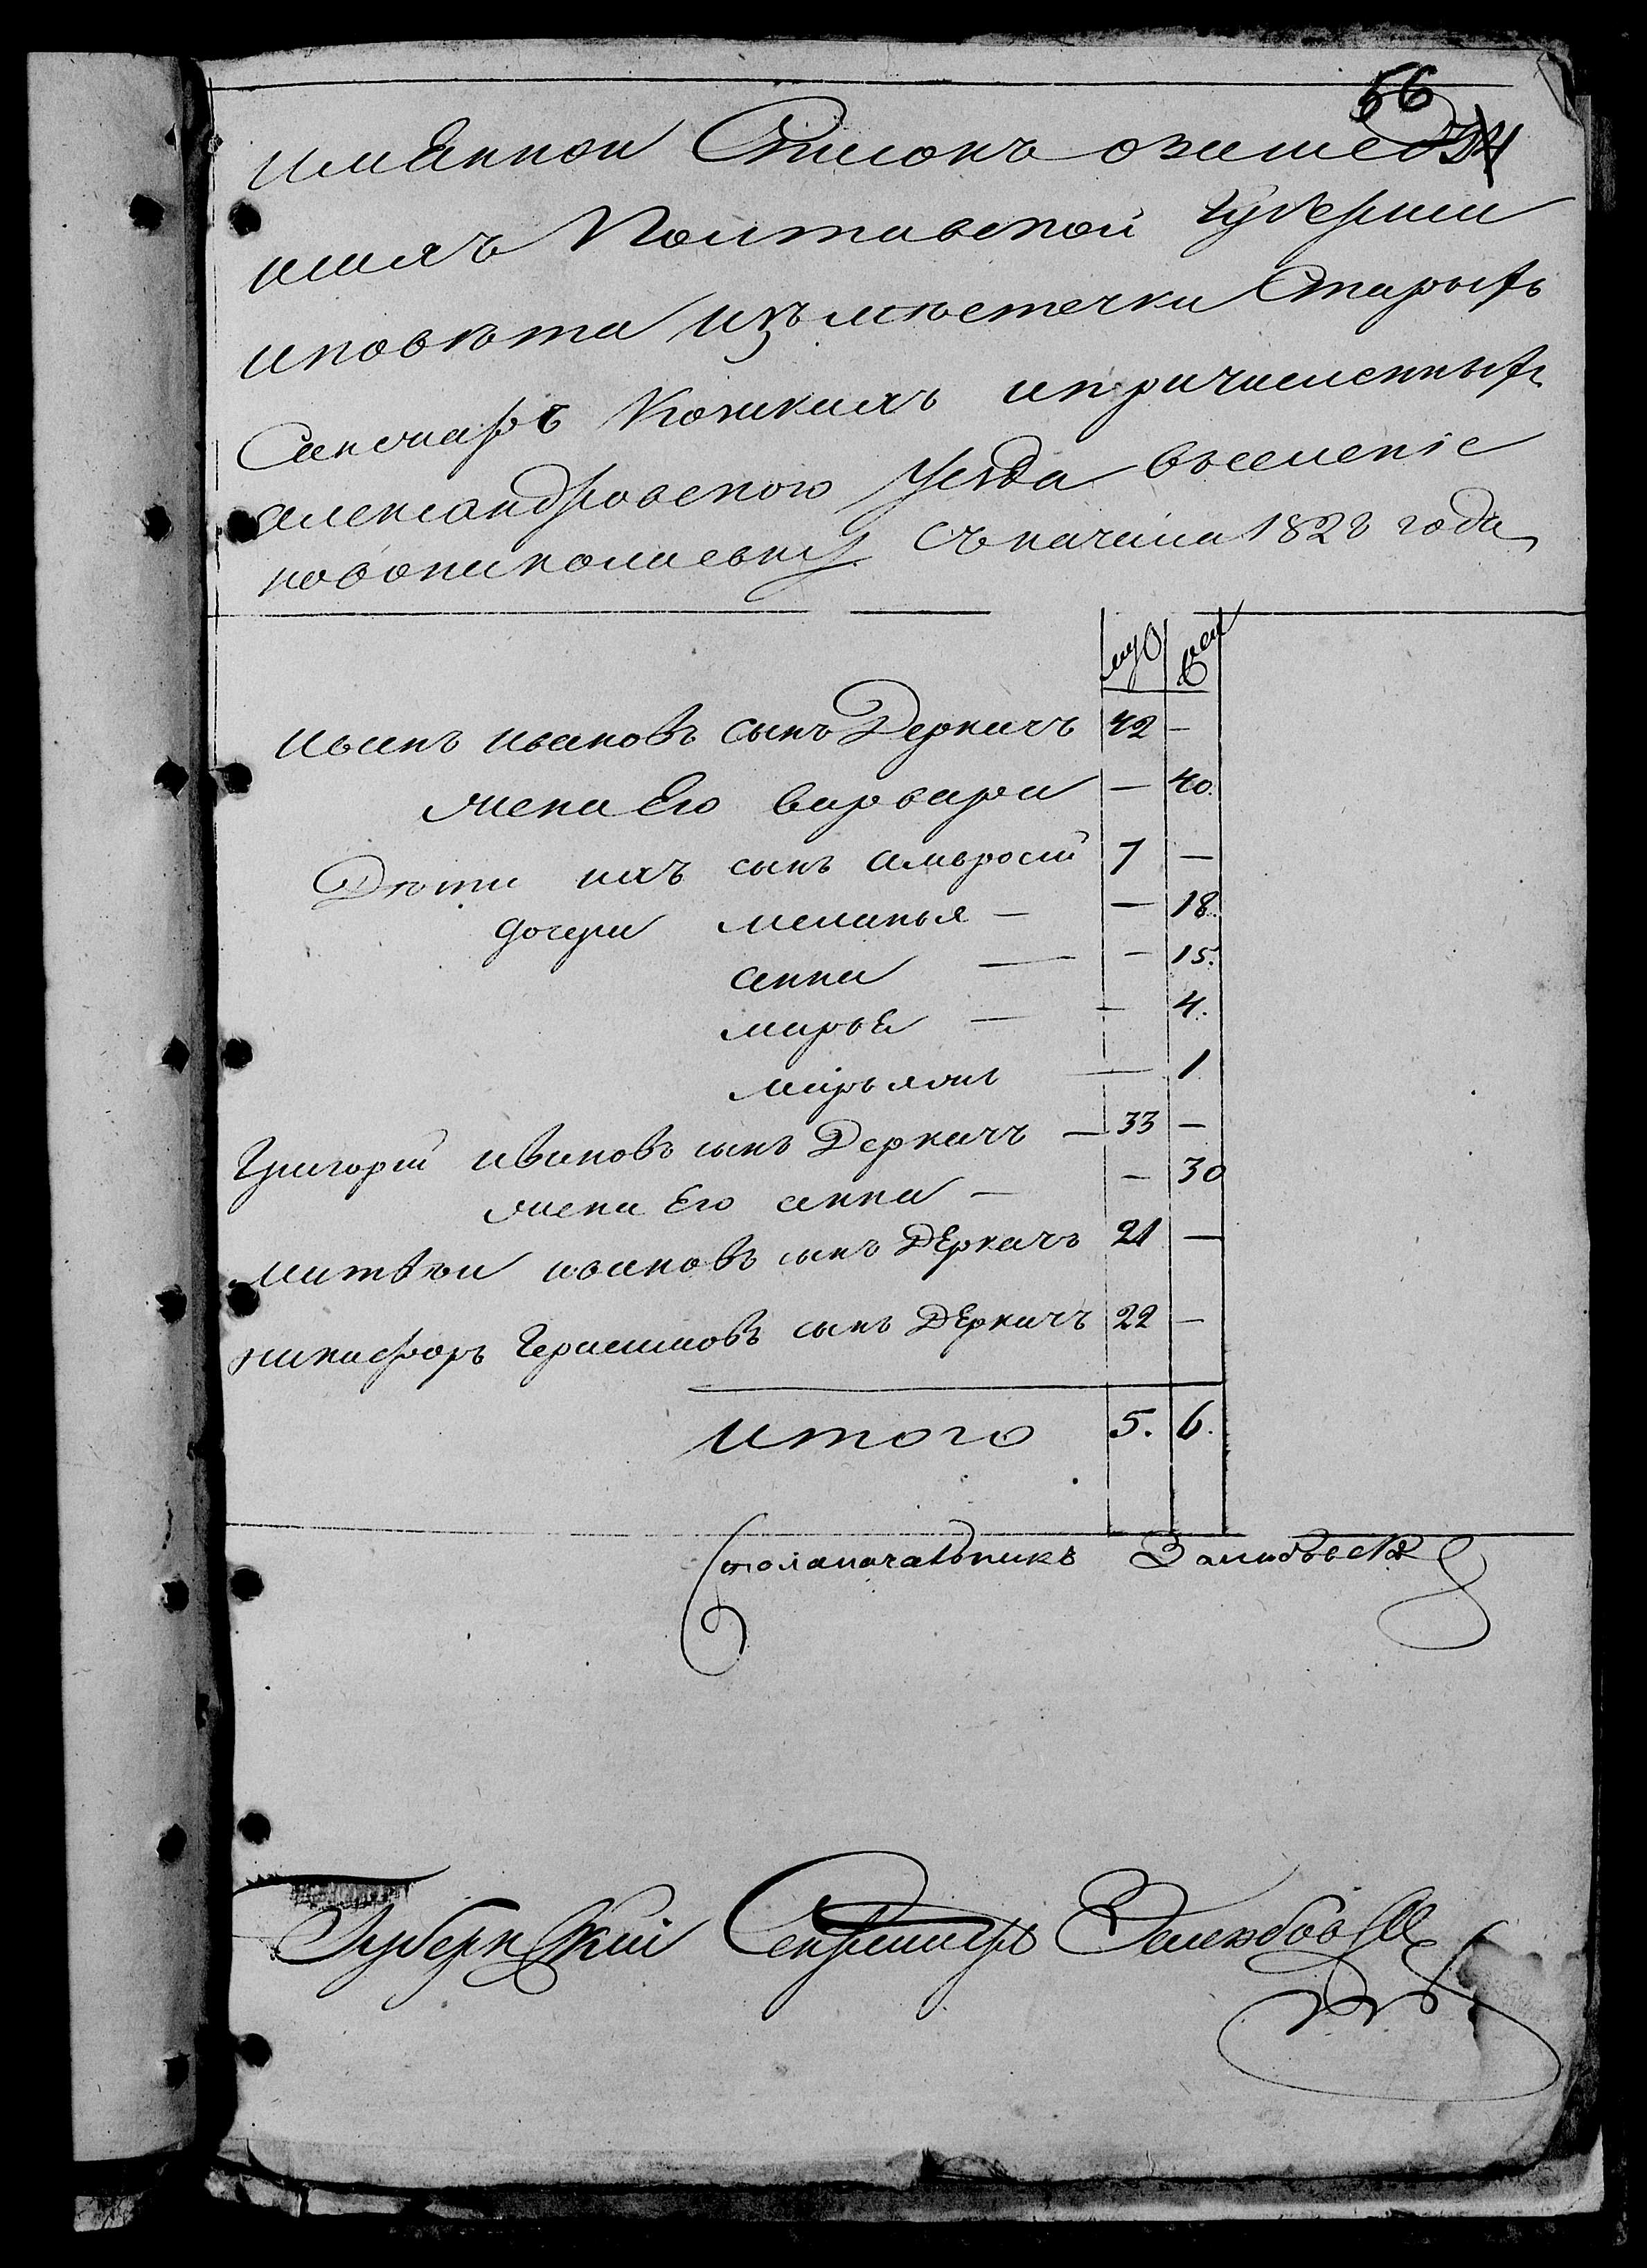 56
имЕнной Списокъ озашед
шихъ Полтавской Губернии
иповѣта изъ мѣстечка Старыхъ
Санжаръ Кожкахъ ипричисленныхъ
александровского уезда вселеніе
новониколаевку съ начала 1828 года
муж жен
иванъ ивановъ сынъ Деркачъ 42 —
жена Его варвара — 40.
Дѣти ихъ сынъ амвросій 7 —
дочери меланья — — 18.
анна — — 15.
марьЕ — — 4.
марьяна — 1
Григорій ивановъ сынъ Деркачъ — 33 —
жена Его анна — — 30
матвѣи ивановъ сынъ ДЕркачъ 21 —
никифоръ Герасимовъ сынъ ДЕркачъ 22 —
итого 5. 6.
Столаначальникъ
Губернскій Секретарь